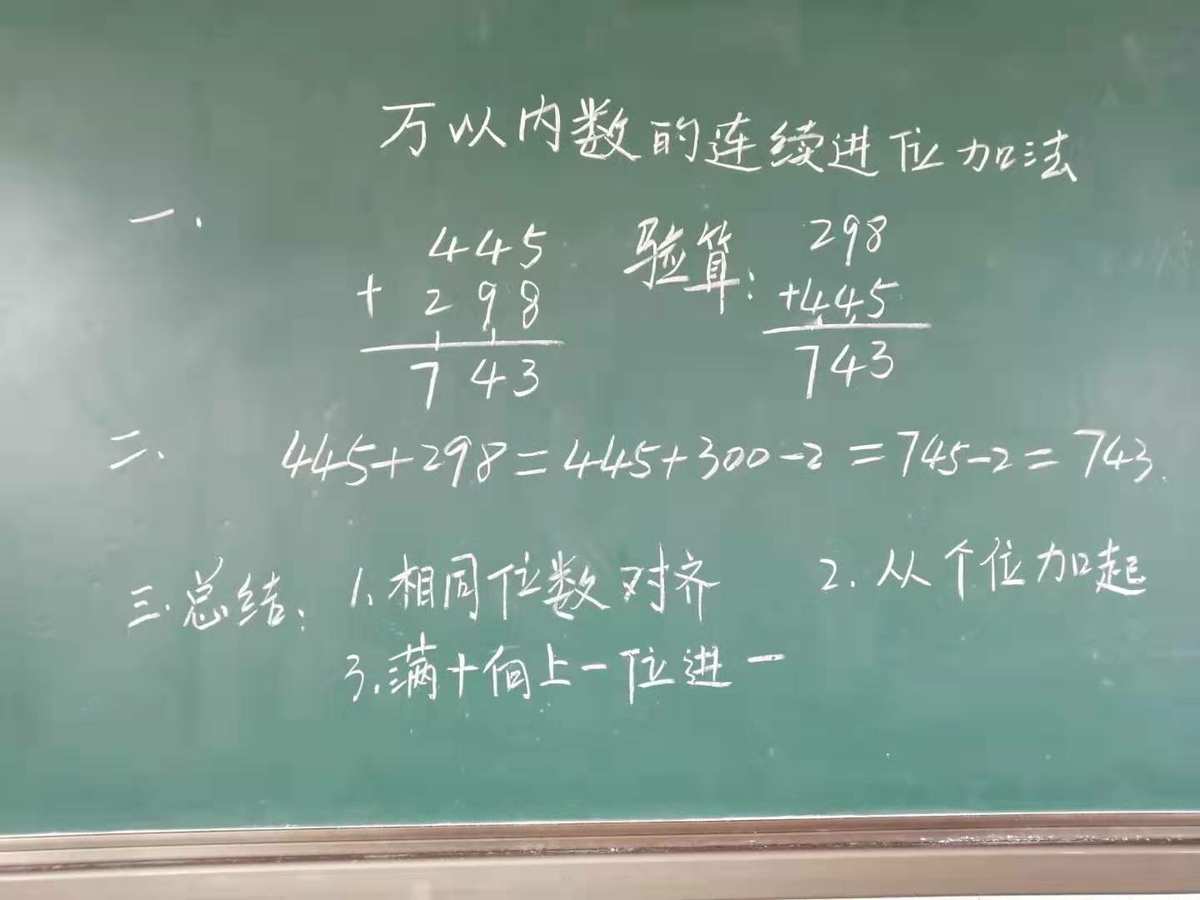 万以内数的连续进位加法
一、
445 验算: 298
+ 298 +445
743 743
二、 445+298=445+300-2=745-2=743.
三.总结: 1.相同位数对齐 2.从个位加起
3.满十向上一位进一